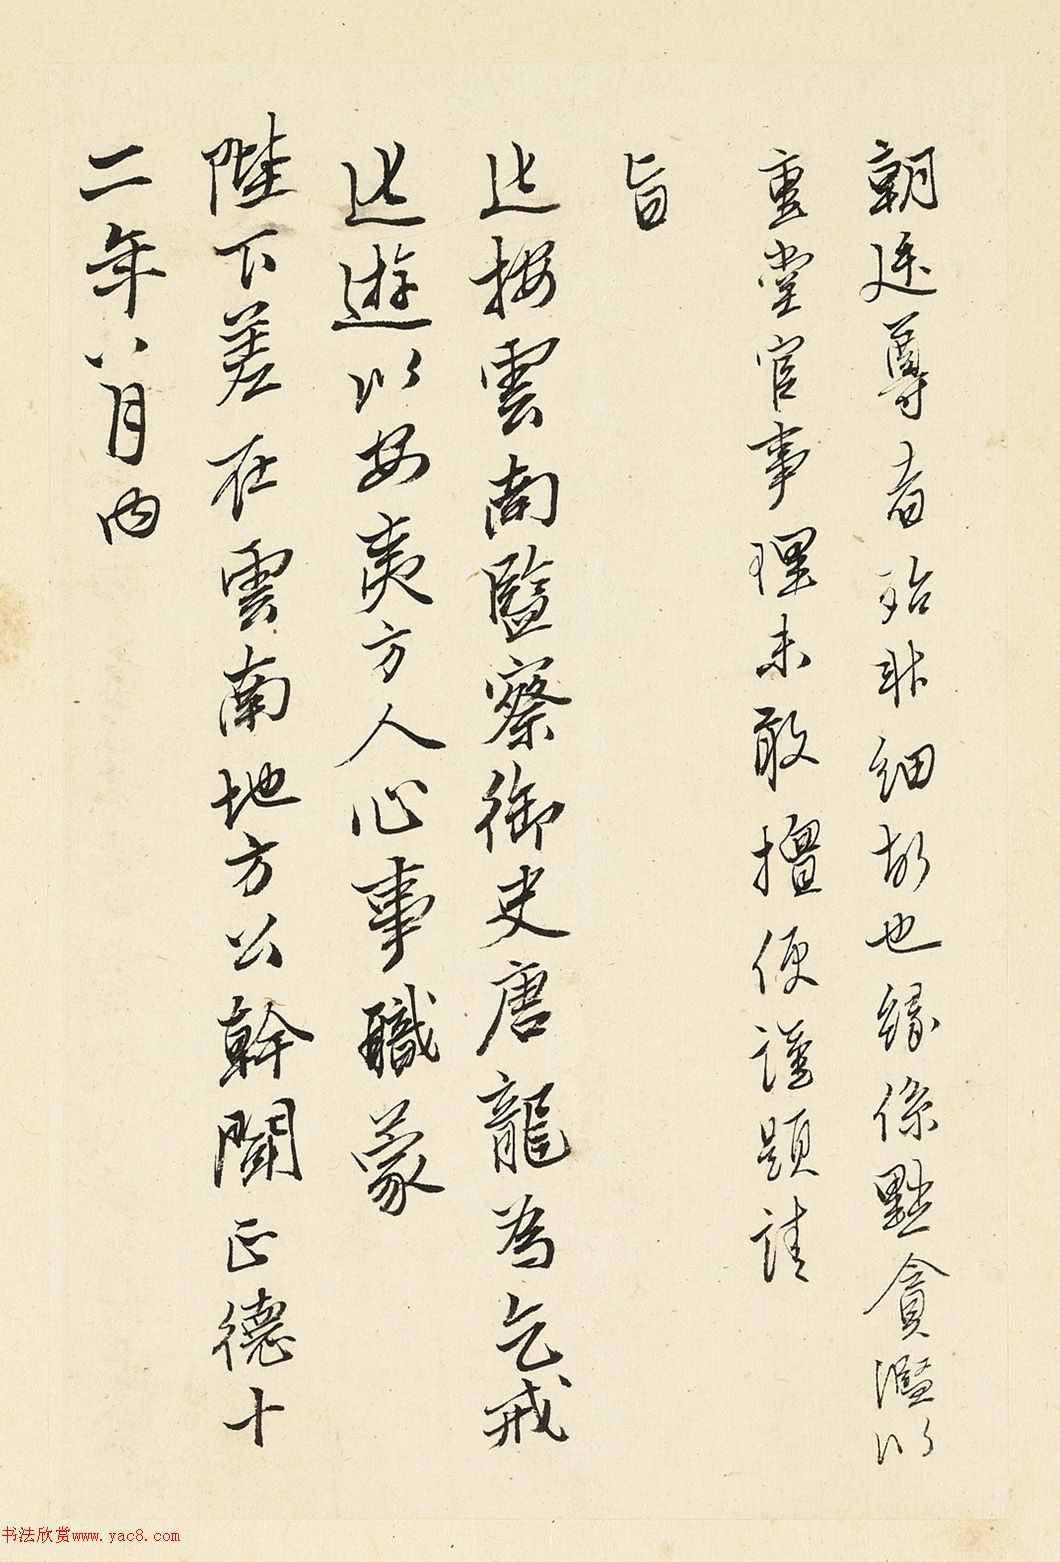 朝廷尊者殆非細故也緣係黜貪濫以
重堂官事理未敢擅便謹題請
旨
巡按雲南監察御史唐龍為乞戒
巡遊以安夷方人心事職蒙
陛下差在雲南地方公幹聞正德十
二年八月內
书法欣赏www.yac8.com